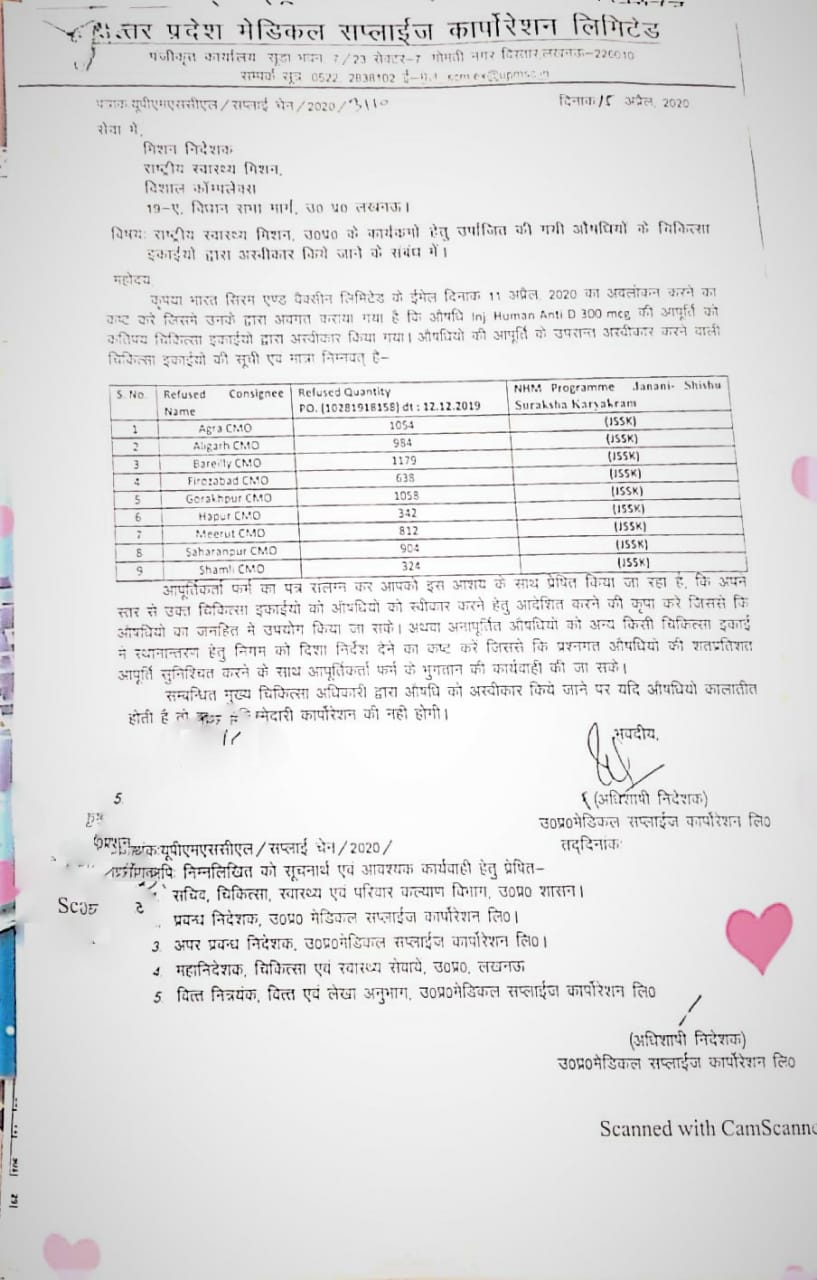 उत्तर प्रदेश मेडिकल सप्लाईज कार्पोरेशन लिमिटेड
पंजीकृत कार्यालय सूडा भवन, 7/23 सेक्टर-7 गोमती नगर विस्तार,लखनऊ-226010
सम्पर्क सूत्र 0522 2838102
पत्रांक यूपीएमएससीएल/सप्लाई चेन/2020/3110 दिनांक 15 अप्रैल, 2020
सेवा में,
मिशन निदेशक
राष्ट्रीय स्वास्थ्य मिशन,
विशाल कॉम्पलेक्स
19-ए, विधान सभा मार्ग, उ० प्र० लखनऊ।
विषयः राष्ट्रीय स्वास्थ्य मिशन, उ०प्र० के कार्यकमो हेतु उपार्जित की गयी औषधियों के चिकित्सा
इकाईयो द्वारा अस्वीकार किये जाने के संबंध में।
महोदय,
कृपया भारत सिरम एण्ड वैक्सीन लिमिटेड के ईमेल दिनांक 11 अप्रैल, 2020 का अवलोकन करने का
कष्ट करे जिसमे उनके द्वारा अवगत कराया गया है कि औषधि Inj. Human Anti D 300 mcg की आपूर्ति को
कतिपय चिकित्सा इकाईयो द्वारा अस्वीकार किया गया। औषधियो की आपूर्ति के उपरान्त अस्वीकार करने वाली
चिकित्सा इकाईयो की सूची एवं मात्रा निम्नवत् है-
S. No. Refused Consignee Name Refused Quantity PO. (10281918158) dt : 12.12.2019 NHM Programme Janani- Shishu Suraksha Karyakram
1 Agra CMO 1054 (JSSK)
2 Aligarh CMO 984 (JSSK)
3 Bareilly CMO 1179 (JSSK)
4 Firozabad CMO 638 (JSSK)
5 Gorakhpur CMO 1058 (JSSK)
6 Hapur CMO 342 (JSSK)
7 Meerut CMO 812 (JSSK)
8 Saharanpur CMO 904 (JSSK)
9 Shamli CMO 324 (JSSK)
आपूर्तिकर्ता फर्म का पत्र संलग्न कर आपको इस आशय के साथ प्रेषित किया जा रहा है, कि अपने
स्तर से उक्त चिकित्सा इकाईयो को औषधियो को स्वीकार करने हेतु आदेशित करने की कृपा करे जिससे कि
औषधियो का जनहित मे उपयोग किया जा सके। अथवा अनापूर्तित औषधियो को अन्य किसी चिकित्सा इकाई
मे स्थानान्तरण हेतु निगम को दिशा निर्देश देने का कष्ट करे जिससे कि प्रश्नगत औषधियो की शतप्रतिशत
आपूर्ति सुनिश्चित करने के साथ आपूर्तिकर्ता फर्म के भुगतान की कार्यवाही की जा सके।
सम्बन्धित मुख्य चिकित्सा अधिकारी द्वारा औषधि को अस्वीकार किये जाने पर यदि औषधियो कालातीत
होती है तो जिम्मेदारी कार्पोरेशन की नही होगी।
भवदीय,
(अधिशाषी निदेशक)
उ०प्र०मेडिकल सप्लाईज कार्पोरेशन लि०
5.
यूपीएमएससीएल/सप्लाई चेन/2020/ तद्दिनांकः
निम्नलिखित को सूचनार्थ एवं आवश्यक कार्यवाही हेतु प्रेषित-
सचिव, चिकित्सा, स्वास्थ्य एवं परिवार कल्याण विभाग, उ०प्र० शासन।
प्रबन्ध निदेशक, उ०प्र० मेडिकल सप्लाईज कार्पोरेशन लि०।
3. अपर प्रबन्ध निदेशक, उ०प्र०मेडिकल सप्लाईज कार्पोरेशन लि०।
4. महानिदेशक, चिकित्सा एवं स्वास्थ्य सेवाये, उ०प्र०, लखनऊ
5. वित्त नित्रयंक, वित्त एवं लेखा अनुभाग, उ०प्र०मेडिकल सप्लाईज कार्पोरेशन लि०
(अधिशाषी निदेशक)
उ०प्र०मेडिकल सप्लाईज कार्पोरेशन लि०
Scanned with CamScanne